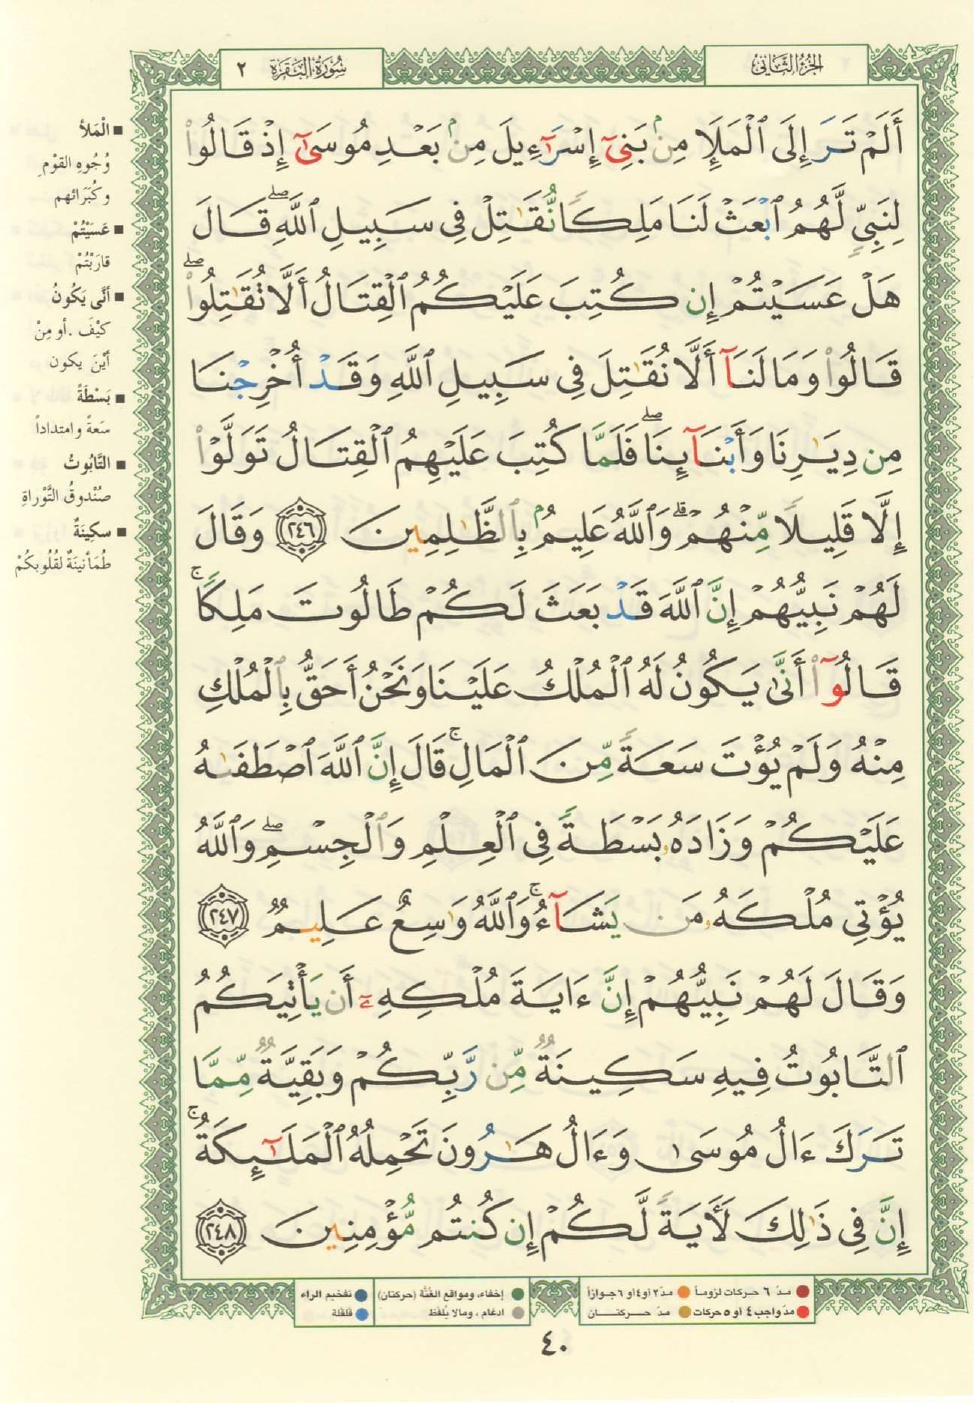 الجزء الثاني
سورة البقرة ٢
أَلَمْ تَرَ إِلَى ٱلْمَلَإِ مِنۢ بَنِىٓ إِسْرَٰٓءِيلَ مِنۢ بَعْدِ مُوسَىٰٓ إِذْ قَالُوا۟
لِنَبِىٍّ لَّهُمُ ٱبْعَثْ لَنَا مَلِكًا نُّقَٰتِلْ فِى سَبِيلِ ٱللَّهِ ۖ قَالَ
هَلْ عَسَيْتُمْ إِن كُتِبَ عَلَيْكُمُ ٱلْقِتَالُ أَلَّا تُقَٰتِلُوا۟ ۖ
قَالُوا۟ وَمَا لَنَآ أَلَّا نُقَٰتِلَ فِى سَبِيلِ ٱللَّهِ وَقَدْ أُخْرِجْنَا
مِن دِيَٰرِنَا وَأَبْنَآئِنَا ۖ فَلَمَّا كُتِبَ عَلَيْهِمُ ٱلْقِتَالُ تَوَلَّوْا۟
إِلَّا قَلِيلًا مِّنْهُمْ ۗ وَٱللَّهُ عَلِيمٌۢ بِٱلظَّٰلِمِينَ ٢٤٦ وَقَالَ
لَهُمْ نَبِيُّهُمْ إِنَّ ٱللَّهَ قَدْ بَعَثَ لَكُمْ طَالُوتَ مَلِكًا ۚ
قَالُوٓا۟ أَنَّىٰ يَكُونُ لَهُ ٱلْمُلْكُ عَلَيْنَا وَنَحْنُ أَحَقُّ بِٱلْمُلْكِ
مِنْهُ وَلَمْ يُؤْتَ سَعَةً مِّنَ ٱلْمَالِ ۚ قَالَ إِنَّ ٱللَّهَ ٱصْطَفَىٰهُ
عَلَيْكُمْ وَزَادَهُۥ بَسْطَةً فِى ٱلْعِلْمِ وَٱلْجِسْمِ ۖ وَٱللَّهُ
يُؤْتِى مُلْكَهُۥ مَن يَشَآءُ ۚ وَٱللَّهُ وَٰسِعٌ عَلِيمٌ ٢٤٧
وَقَالَ لَهُمْ نَبِيُّهُمْ إِنَّ ءَايَةَ مُلْكِهِۦٓ أَن يَأْتِيَكُمُ
ٱلتَّابُوتُ فِيهِ سَكِينَةٌ مِّن رَّبِّكُمْ وَبَقِيَّةٌ مِّمَّا
تَرَكَ ءَالُ مُوسَىٰ وَءَالُ هَٰرُونَ تَحْمِلُهُ ٱلْمَلَٰٓئِكَةُ ۚ
إِنَّ فِى ذَٰلِكَ لَءَايَةً لَّكُمْ إِن كُنتُم مُّؤْمِنِينَ ٢٤٨
■ الْمَلَأِ
وُجُوهِ القَوْمِ
وكُبَرَائهم
■ عَسَيْتُمْ
قارَبْتُمْ
■ أنَّى يَكُونُ
كَيْفَ . أو مِنْ
أيْنَ يكون
■ بَسْطَةً
سَعةً وامتداداً
■ التَّابُوتُ
صُنْدوقُ التَّوْراةِ
■ سكِينَةٌ
طُمَأْنينَةٌ لقُلُوبكُمْ
مدّ ٦ حركات لزوماً
مدّ ٢ أو ٤ أو ٦ جوازاً
مدّ واجب ٤ أو ٥ حركات
مدّ حركتان
إخفاء، ومواقع الغُنَّة (حركتان)
ادغام ، ومالا يُلفَظ
تفخيم الراء
قلقلة
٤٠